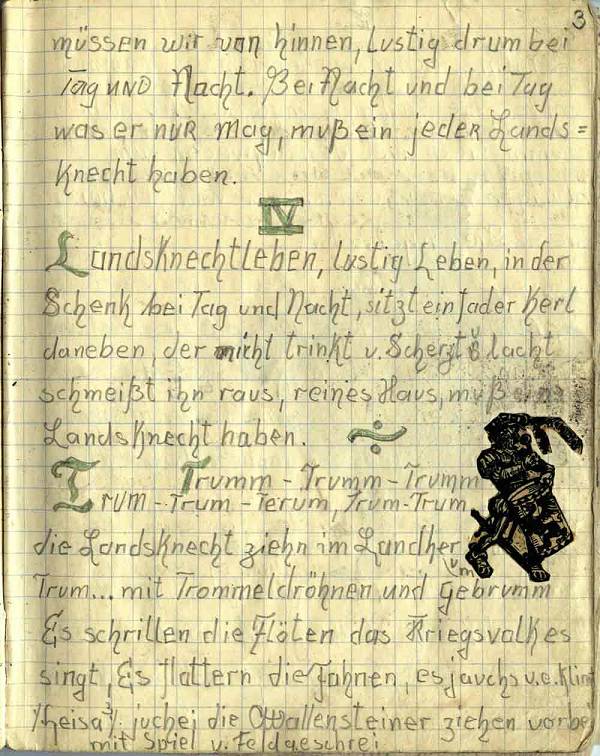 3
müssen wir von hinnen, Lustig drum bei
Tag UND Nacht. Bei Nacht und bei Tag
was er nur mag, muß ein jeder Lands=
Knecht haben.
IV
LandsKnechtleben, lustig Leben, in der
Schenk bei Tag und Nacht, sitzt ein fader Kerl
daneben, der nicht trinkt v. Scherzt u lacht
schmeißt ihn raus, reines Haus, muß
LandsKnecht haben.
Trumm - Trumm - Trumm
Trum - Trum - Terum, Trum-Trum
die LandsKnecht ziehn im Landher
um
Trum... mit Trommeldröhnen und Gebrumm
Es schrillen die Flöten das Kriegsvolk es
singt, Es flattern die Fahnen, es jauchs u. e. Klint
/:heisa:/: juchei die Wallensteiner ziehen vorbei
mit Spiel v. Feldgeschrei